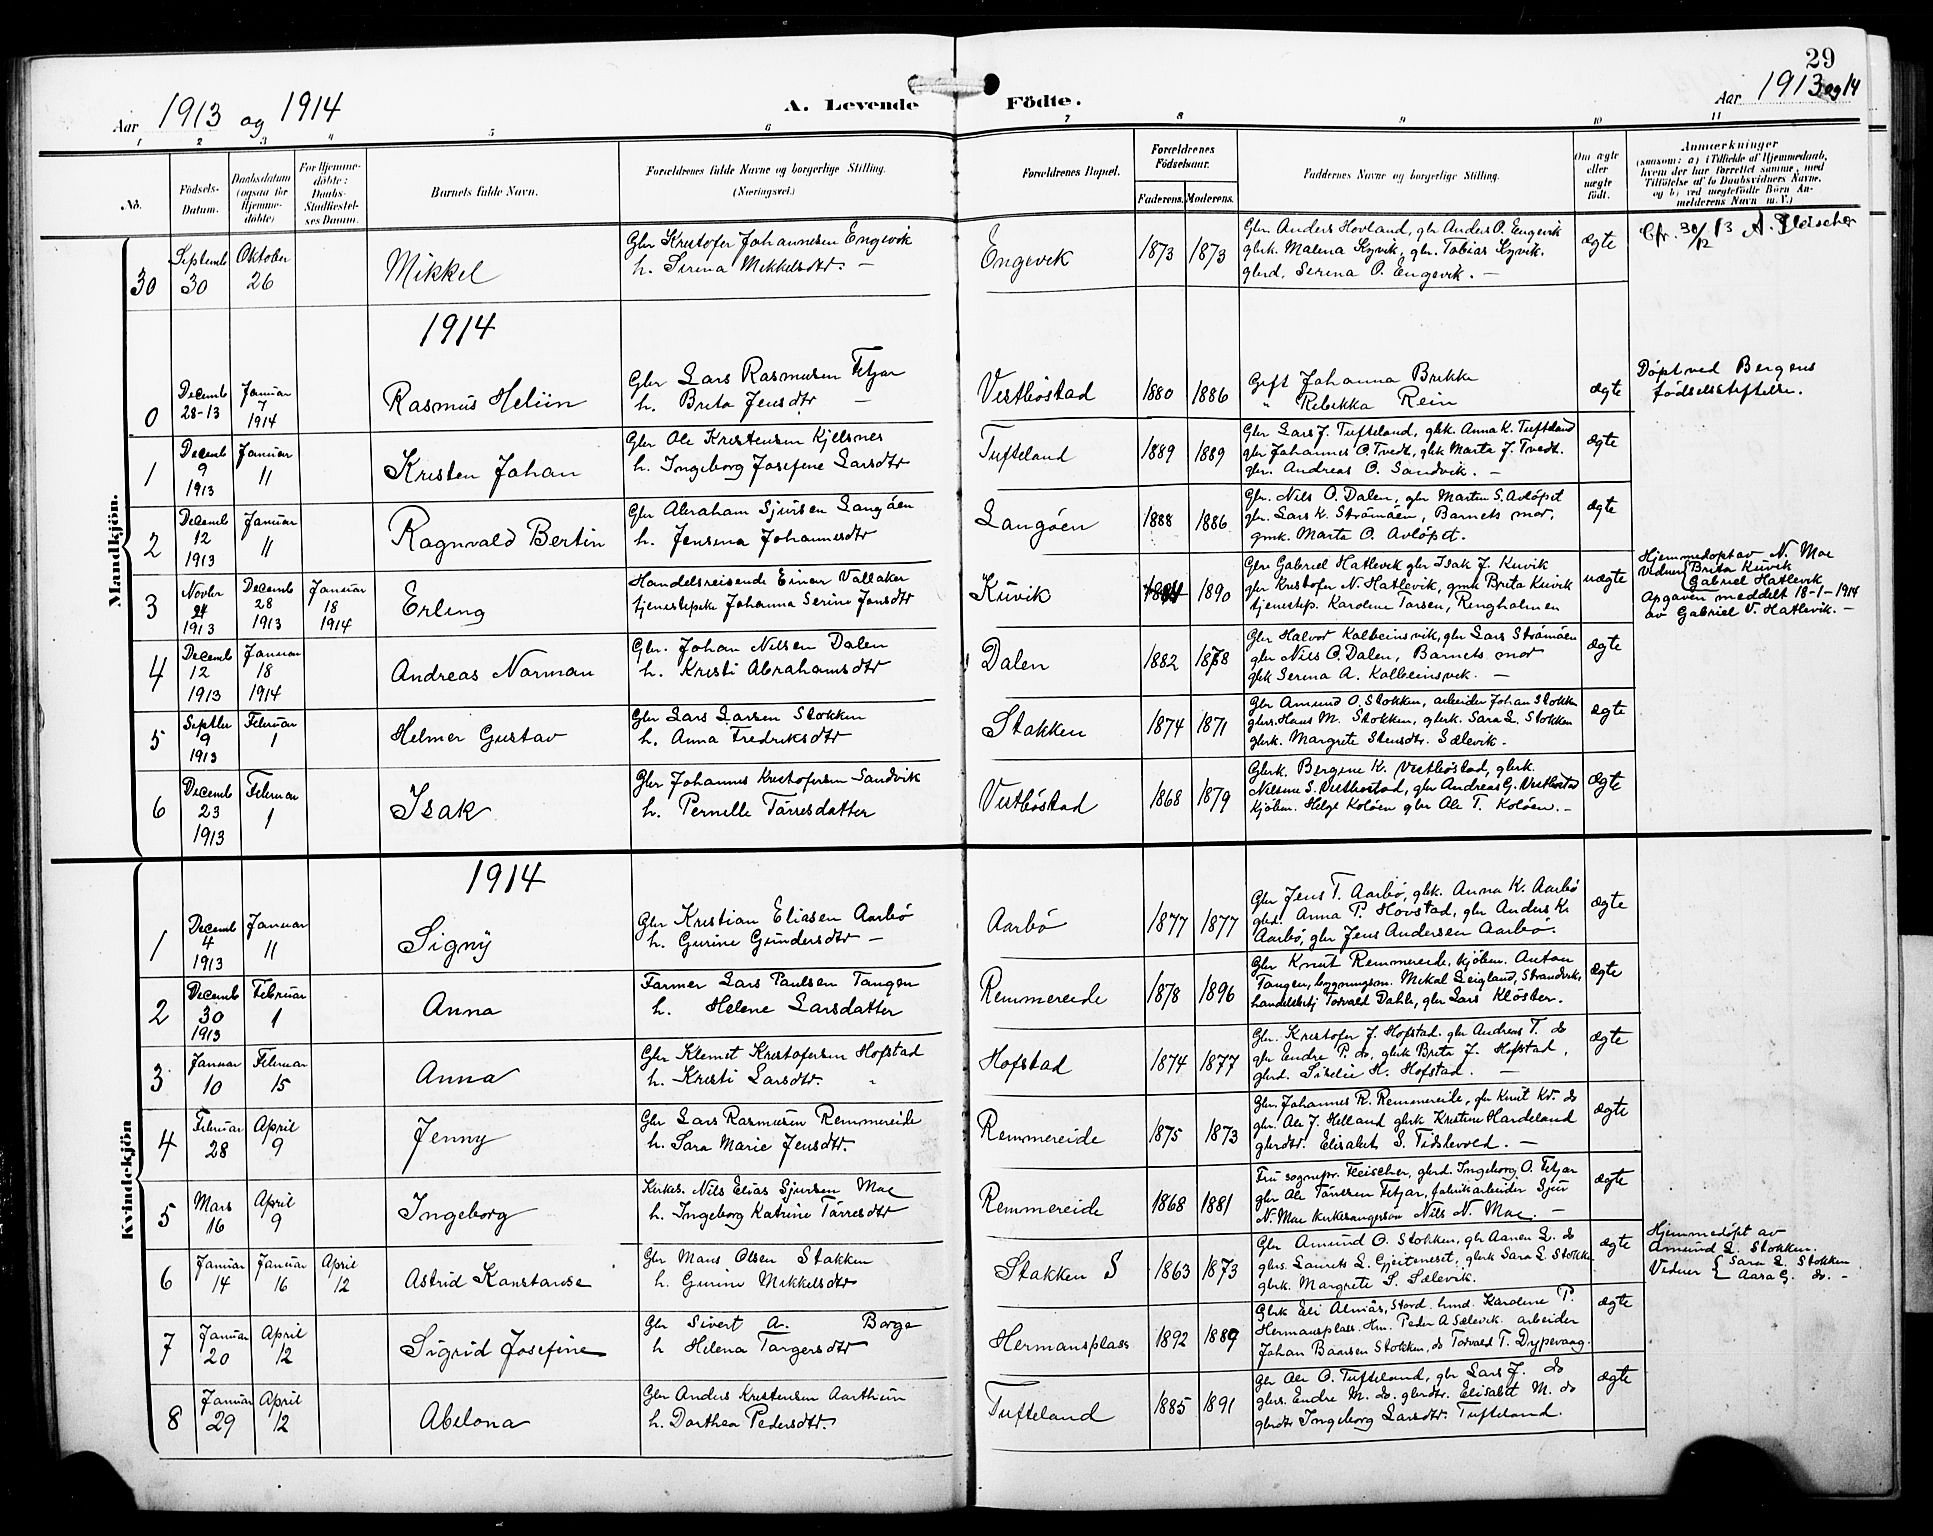 29
Aar 1913 og 1914
A. Levende Födte.
Aar 1913 og 14
1 2 3 4 5 6 7 8 9 10 11
No.
Födsels-Datum.
Daabsdatum (ogsaa for Hjemmedöbte)
For Hjemmedöbte: Daabs-Stadfæstelses Datum.
Barnets fulde Navn.
Forældrenes fulde Navne og borgerlige Stilling. (Næringsvei.)
Forældrenes Bopæl.
Forældrenes Födselsaar.
Faderens. Moderens.
Faddernes Navne og borgerlige Stilling.
Om ægte eller uægte födt.
Anmærkninger
(saasom: a) i Tilfælde af Hjemmedaab, hvem der har forrettet samme, med Tilföielse af to Daabsvidners Navne, og b) ved uægtefödte Börn Anmelderens Navn m. V.)
Mandkjön.
30 Septemb 30 Oktober 26 Mikkel
Gbr Kristofer Johannesen Engevik
h. Sirena Mikkelsdtr. —
Engevik 1873 1873
Gbr. Anders Hovland, gbr Anders O. Engevik
gbrk. Malena Kyvik, gbr. Tobias Kyvik.
gbrd. Serina O. Engevik. —
ægte
Cfr. 30/12 13 A. Fleischer
1914
0 Decemb 28-13 Januar 7 1914 Rasmus Heliin
Gbr Lars Rasmusen Fitjar
h. Brita Jensdtr —
Vestbøstad 1880 1886
Gift Johanna Brekke
" Rebekka Rein
ægte
Døpt ved Bergens
fødselsstiftelse.
1 Decemb 9 1913 Januar 11 Kristen Johan
Gbr Ole Kristensen Kjelsnes
h. Ingeborg Josefine Larsdtr
Tufteland 1889 1889
Gbr Lars J. Tufteland, gbk. Anna K. Tufteland
gbr Johannes O. Tvedt, gbk Marta J. Tvedt.
gbr. Andreas O. Sandvik. —
ægte
2 Decemb 12 1913 Januar 11 Ragnvald Bertin
Gbr Abraham Sjursen Langøen
h. Jensina Johannesdtr
Langøen 1888 1886
Gbr. Nils O. Dalen, gbr Martin S. Avløpet
gbr. Lars K. Strømøen, Barnets mor,
gmk. Marta O. Avløpet.
ægte
3 Novbr 24 1913 Decemb 28 1913 Januar 18 1914 Erling
Handelsreisende Einar Vallaker
tjenestepike Johanna Serine Jonsdtr
Kuvik 1890
Gbr. Gabriel Hatlevik gbr Isak J. Kuvik
gbr Kristofer N. Hatlevik, gmk Brita Kuvik
tjenestep. Karoline Torsen, Ringholmen
uægte
Hjemmedøpt av N. Moe
Vidner Brita Kuvik
Gabriel Hatlevik
Apgaven meddelt 18-1-1914
av Gabriel V. Hatlevik. —
4 Decemb 12 1913 Januar 18 1914 Andreas Norman
Gbr. Johan Nilsen Dalen
h. Kristi Abrahamsdtr
Dalen 1882 1878
Gbr Halvor Kolbeinsvik, gbr Lars Strømøen
gbr Nils O. Dalen, Barnets mor
gbk Serina A. Kolbeinsvik. —
ægte
5 Septbr 9 1913 Februar 1 Helmer Gustav
Gbr Lars Larsen Stokken
h. Anna Fredriksdtr
Stokken 1874 1871
Gbr Amund O. Stokken, arbeider Johan Stokken
gbrs. Hans M. Stokken, gbrk. Sara L. Stokken
gbrk. Margrete Stensdtr. Sælevik.
ægte
6 Decemb 23 1913 Februar 1 Isak
Gbr Johannes Kristofersen Sandvik
h. Pernille Tørresdatter
Vestbøstad 1868 1879
Gbrk. Bergine K. Vestbøstad, gbrk.
Nilsine S. Vestbøstad, gbr Andreas G. Vestbøstad
kjøbm. Helge Koløen gbr Ole T. Koløen. —
ægte
Kvindekjön
1914
1 Decemb 4 1913 Januar 11 Signy
Gbr Kristian Eliasen Aarbø
h. Gurine Gundersdtr —
Aarbø 1877 1877
Gbr Jens T. Aarbø, gbk. Anna K. Aarbø
gbd. Anna P. Hovstad, gbr Anders K.
Aarbø, gbr Jens Andersen Aarbø.
ægte
2 Decemb 30 1913 Februar 1 Anna
Farmer Lars Paulsen Tangen
h. Helene Larsdatter
Remmereide 1878 1896
Gbr Knut Remmereide, kjøbm. Anton
Tangen, bygningsm. Mikal Leigland, Strandvik,
handelsbetj Torvald Dahle, gbr Lars Kløster.
ægte
3 Januar 10 Februar 15 Anna
Gbr Klemet Kristofersen Hofstad
h. Kristi Larsdtr. "
Hofstad 1874 1877
Gbr. Kristofer J. Hofstad. gbr Andreas T. do
gbr Endre P. do, gbrk Brita J. Hofstad,
gbrd. Sibelie H. Hofstad. —
ægte
4 Februar 28 April 9 Jenny
Gbr Lars Rasmusen Remmereide
h. Sara Marie Jensdtr.
Remmereide 1875 1873
Gbr. Johannes R. Remmereide, gbr Knut Kr. do
gbr. Ole J. Helland gbrk Kristine Hardeland
gbrdtr. Elisabet S. Tislevold. —
ægte
5 Mars 16 April 9 Ingeborg
Kirkes. Nils Elias Sjursen Moe
h. Ingeborg Katrine Tørresdtr
Remmereide 1868 1881
Fru sognepr. Fleischer, gbrd. Ingeborg O. Fitjar
gbr Ole Tønesen Fitjar, fabrikarbeider Sjur
N. Moe kirkesangersøn Nils N. Moe. —
ægte
6 Januar 14 Januar 16 April 12 Astrid Konstanse
Gbr Mons Olsen Stokken
h. Gurine Mikkelsdtr
Stokken S 1863 1873
Gbr Amund O. Stokken, gbr Aanen L. do
gbrs. Laurits L. Gjeiteneset, gbrk Sara L. Stokken
gbrk. Margrete S. Sælevik.
ægte
Hjemmedøpt av
Amund L. Stokken.
Vidner { Sara L. Stokken
Aasa G. do. —
7 Januar 20 April 12 Sigrid Josefine
Gbr Sivert A. Borge
h Helena Torgersdtr
Hermansplass 1892 1889
Gbrk Eli Almås, Stord. hmd. Karoline P.
Hermansplass. Hm. Peder A Sælevik. arbeider
Johan Baarsen Stokken, do Torvald T. Dypevaag.
ægte
8 Januar 29 April 12 Abelona
Gbr Anders Kristensen Aartheim
h. Dorthea Pedersdtr.
Tufteland 1885 1891
Gbr Ole O. Tufteland, gbr Lars J. do
gbrs. Endre M. do. gbrdtr. Elisabet M. do
gbrdtr Ingeborg Larsdtr. Tufteland.
ægte